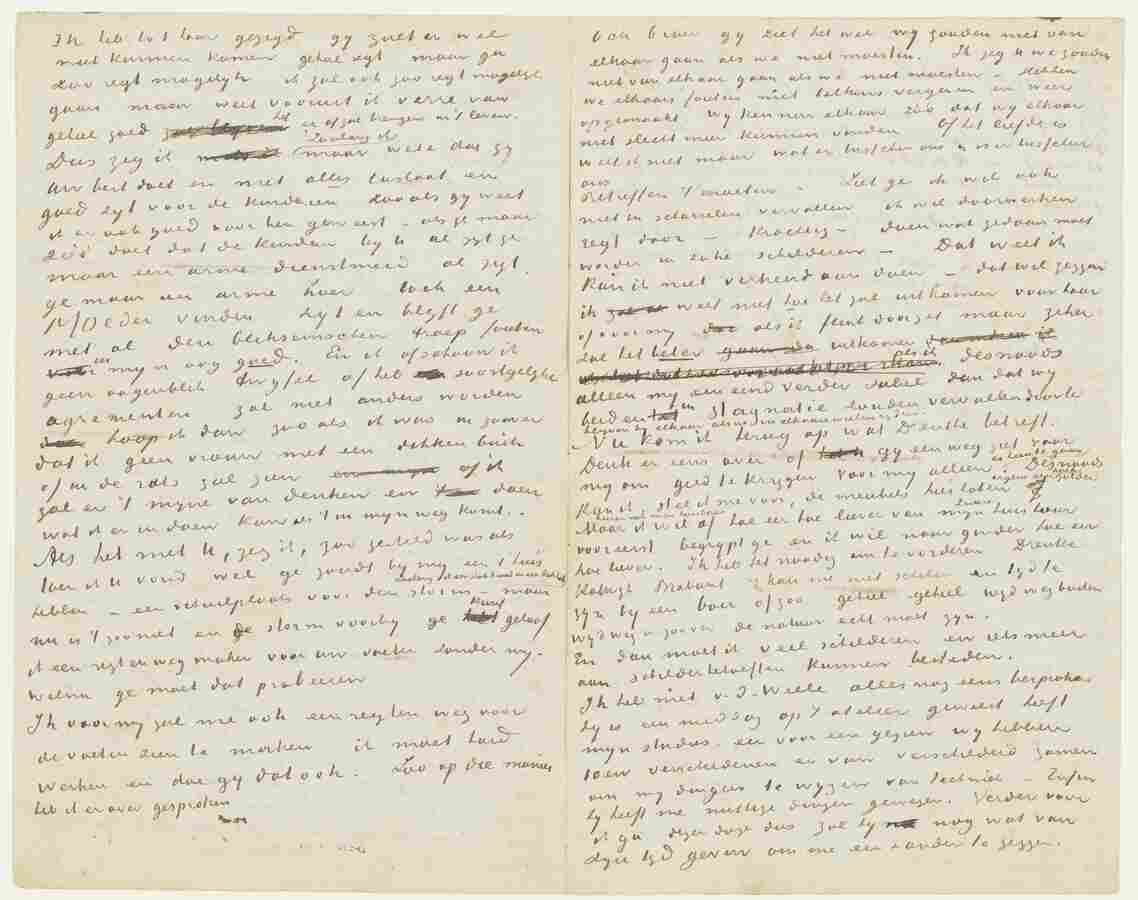 Ik heb tot haar gezegd gy zult er wel
niet kunnen komen geheel regt maar ga
zoo regt mogelyk ik zal ook zoo regt mogelyk
gaan maar weet vooruit ik verre van
geheel goed het er af zal brengen in 't leven.
Dus zeg ik Zoolang ik maar weet dat gy
uw best doet en niet alles loslaat en
goed zyt voor de kinderen zooals gy weet
ik er ook goed voor hen geweest – als ge maar
zóó doet dat de kinderen by U al zyt ge
maar een arme dienstmeid al zyt
ge maar een arme hoer toch een
Moeder vinden zyt en blyft ge
met al den bliksemschen troep fouten
in myn oog goed. En ik ofschoon ik
geen oogenblik twyfel of het soortgelyke
agrementen zal niet anders worden
hoop ik dan zoo als ik was in zoover
dat ik geen vrouw met een dikken buik
of in de rats zal zien of ik
zal er 't myne van denken en doen
wat ik er in doen kan als 't in myn weg komt.
Als het met U, zeg ik, zoo gesteld was als
toen ik U vond wel ge zoudt by my een t'huis
hebben – een schuilplaats voor den storm – maar
nu is 't zoo niet en de storm voorby ge kunt geloof
ik een regten weg maken voor uw voeten zonder my.–
Welnu ge moet dat probeeren
Ik voor my zal me ook een regten weg voor
de voeten zien te maken ik moet hard
werken en doe gy dat ook. Zoo op die manier
heb ik er over gesproken
En broer gy ziet het wel wy zouden niet van
elkaar gaan als we niet moesten. Ik zeg U we zouden
niet van elkaar gaan als we niet moesten – Hebben
we elkaars fouten niet telkens vergeven en weer
opgemaakt Wy kennen elkaar zóó dat wy elkaar
niet slecht meer kunnen vinden Of het liefde is
weet ik niet maar wat er tusschen ons is is er tusschen
ons
Betreffen 't moeten. Ziet ge ik wil ook
niet in scharrelen vervallen ik wil doorwerken
regt door – krachtig – doen wat gedaan moet
worden in zake schilderen – Dat weet ik
kan ik niet verkeerd aan doen – dat wil zeggen
ik weet niet hoe het zal uitkomen voor haar
of voor my als ik flink doorzet maar zeker
zal het beter uitkomen als ik desnoods
alleen my een eind verder sabel dan dat wy
beiden in stagnatie zouden vervallen
Nu kom ik terug op wat Drenthe betreft.
Denk er eens over of gy een weg ziet voor
my om geld te krygen voor my alleen Desnoods
kan ik stel ik me voor de meubels hier laten
Maar ik wil af hoe eer hoe liever van myn huis hier
vooreerst begrypt ge en ik wil naar ginder hoe eer
hoe liever. Ik heb het noodig om te vorderen Drenthe
Katwyk Brabant 't kan me niet schelen en tyd te
zyn by een boer of zoo geheel geheel wyd weg buiten
wyd weg in zoover de natuur echt moet zyn.
En dan moet ik veel schilderen en iets meer
aan schilderbehoeften kunnen besteden.
Ik heb met v.d. Weele alles nog eens besproken
hy is een middag op 't atelier geweest heeft
myn studies een voor een gezien wy hebben
toen verscheidenen er van verscheidend samen
om my dingen te wyzen van techniek – Enfin
hy heeft me nuttige dingen gewezen. Verder voor
ik ga dezer dage dus zal hy nog wat van
zyn tyd geven om me een en ander te zeggen.